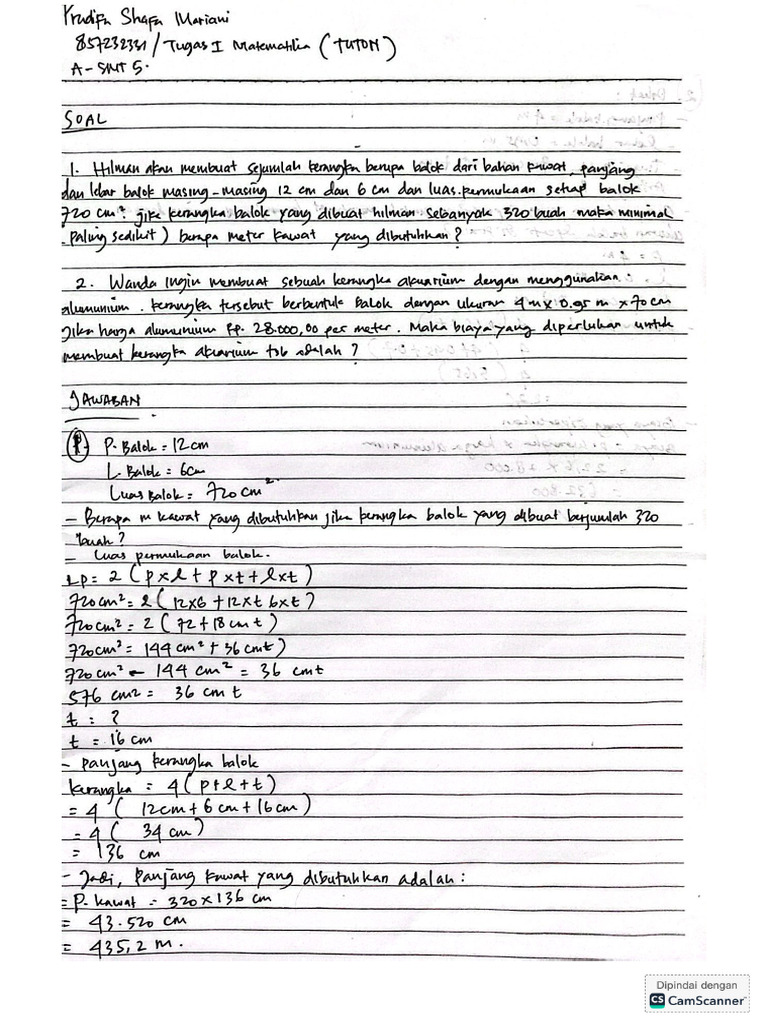 Yrudifa Shafa Mariani
857232331 / Tugas I Matematika (TUTON)
A - SMT 5.
SOAL
1. Hilman akan membuat sejumlah kerangka berupa balok dari bahan kawat, panjang
dan lebar balok masing-masing 12 cm dan 6 cm dan luas permukaan setiap balok
720 cm². jika kerangka balok yang dibuat hilman sebanyak 320 buah maka minimal
paling sedikit) berapa meter kawat yang dibutuhkan ?
2. Wanda ingin membuat sebuah kerangka akuarium dengan menggunakan
alumunium. kerangka tersebut berbentuk balok dengan ukuran 4 m x 0.95 m x 70 cm
jika harga alumunium Rp. 28.000,00 per meter. Maka biaya yang diperlukan untuk
membuat kerangka akuarium tsb adalah ?
JAWABAN
1. P. Balok = 12 cm
L. Balok = 6cm
Luas Balok = 720 cm²
- Berapa m kawat yang dibutuhkan jika kerangka balok yang dibuat berjumlah 320
buah ?
- Luas permukaan balok.
LP = 2 ( p x l + p x t + l x t )
720 cm² = 2 ( 12x6 + 12xt 6xt )
720 cm² = 2 ( 72 + 18 cm t )
720 cm² = 144 cm² + 36 cmt )
720 cm² - 144 cm² = 36 cmt
576 cm2 = 36 cm t
t = ?
t = 16 cm
- panjang kerangka balok
kerangka = 4 ( p + l + t )
= 4 ( 12cm + 6 cm + 16 cm )
= 4 ( 34 cm )
= 136 cm
- Jadi, Panjang kawat yang dibutuhkan adalah :
= P. kawat = 320 x 136 cm
= 43.520 cm
= 435,2 m.
Dipindai dengan
CS CamScanner